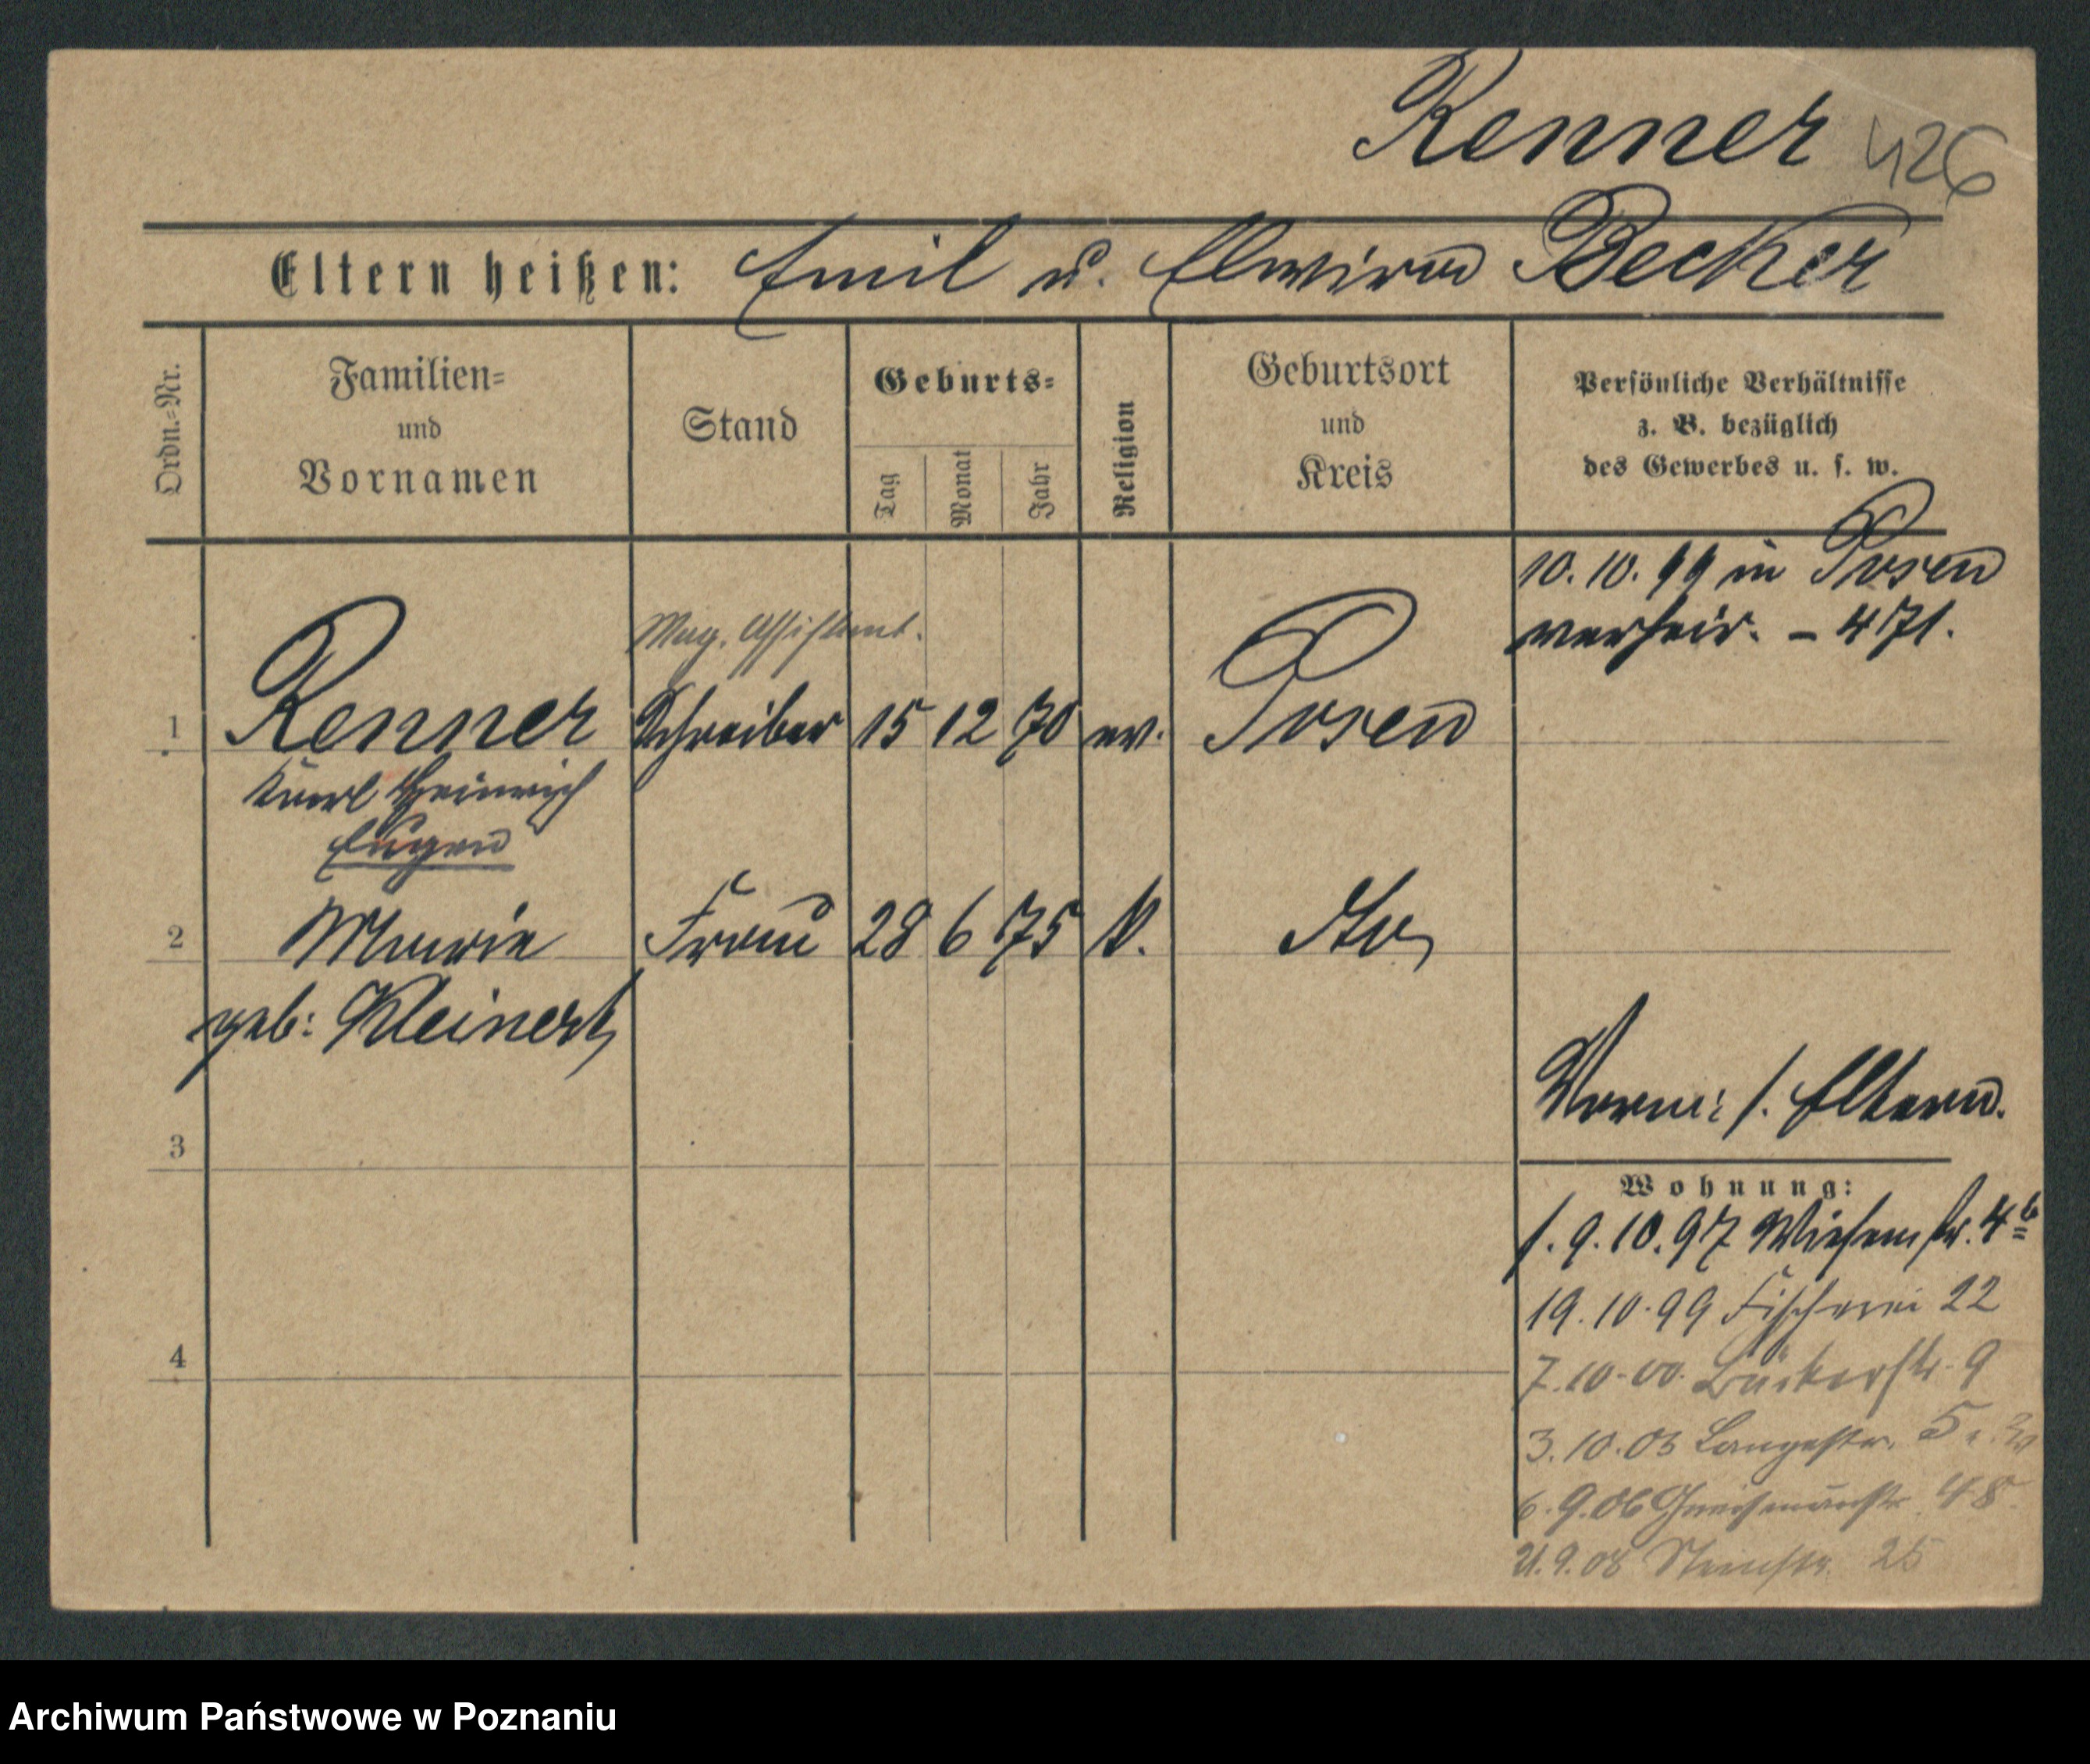 Renner 426
Eltern heißen: Emil u. Elwira Becker
Ordn.=Nr.
Familien=
und
Vornamen
Stand
Geburts=
Tag
Monat
Jahr
Religion
Geburtsort
und
Kreis
Persönliche Verhältnisse
z. B. bezüglich
des Gewerbes u. s. w.
10. 10. 99 in Posen
verheir. – 471.
Mag. Assistent.
1 Renner Schreiber 15 12 70 ev. Posen
Karl Heinrich
Eugen
2 Marie Frau 28 6 75 k.
geb: Kleinert
3
4
Vorm: s. Eltern.
Wohnung:
s. 9. 10. 97 Wiesenstr. 4b
19. 10. 99 Fischerei 22
7. 10. 00. Bäckerstr. 9
3. 10. 03 Langestr. 5
6. 9. 06 48
21. 9. 08 25
Archiwum Państwowe w Poznaniu